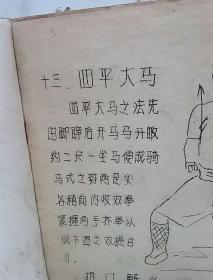 十三、四平大马
四平大马之法先
由脚蹲右开马马开畋
约二尺一坐马便成骑
马式之势两足尖
各稍向内收双拳
紧握两手齐举从
成下图之双提日
月